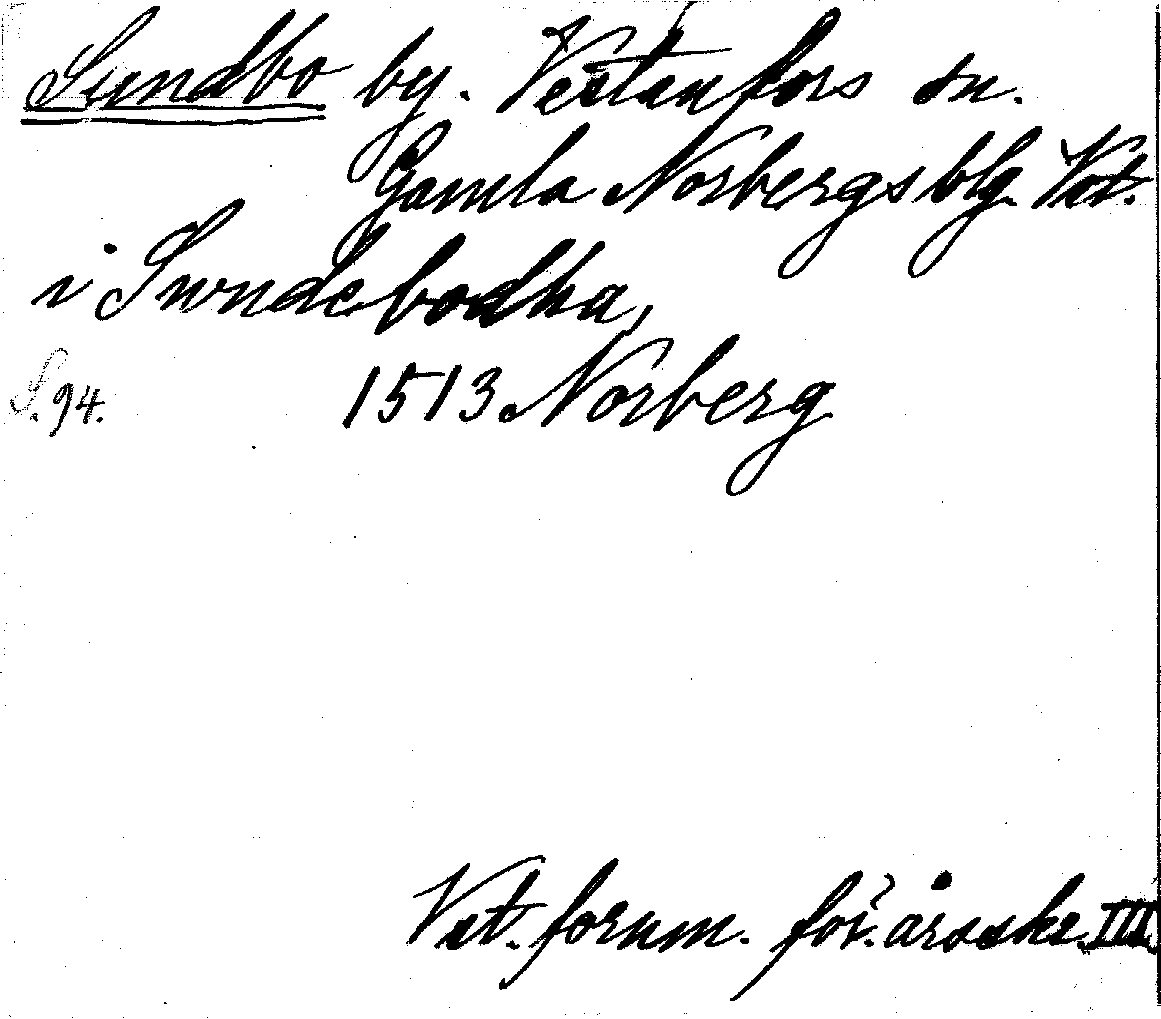 Sundbo by. Vestanfors sn.
Gamla Norbergs blg. Vst.
i Swndebodha,
S. 94. 1513 Norberg
Vst. fornm. för. årsskr. III